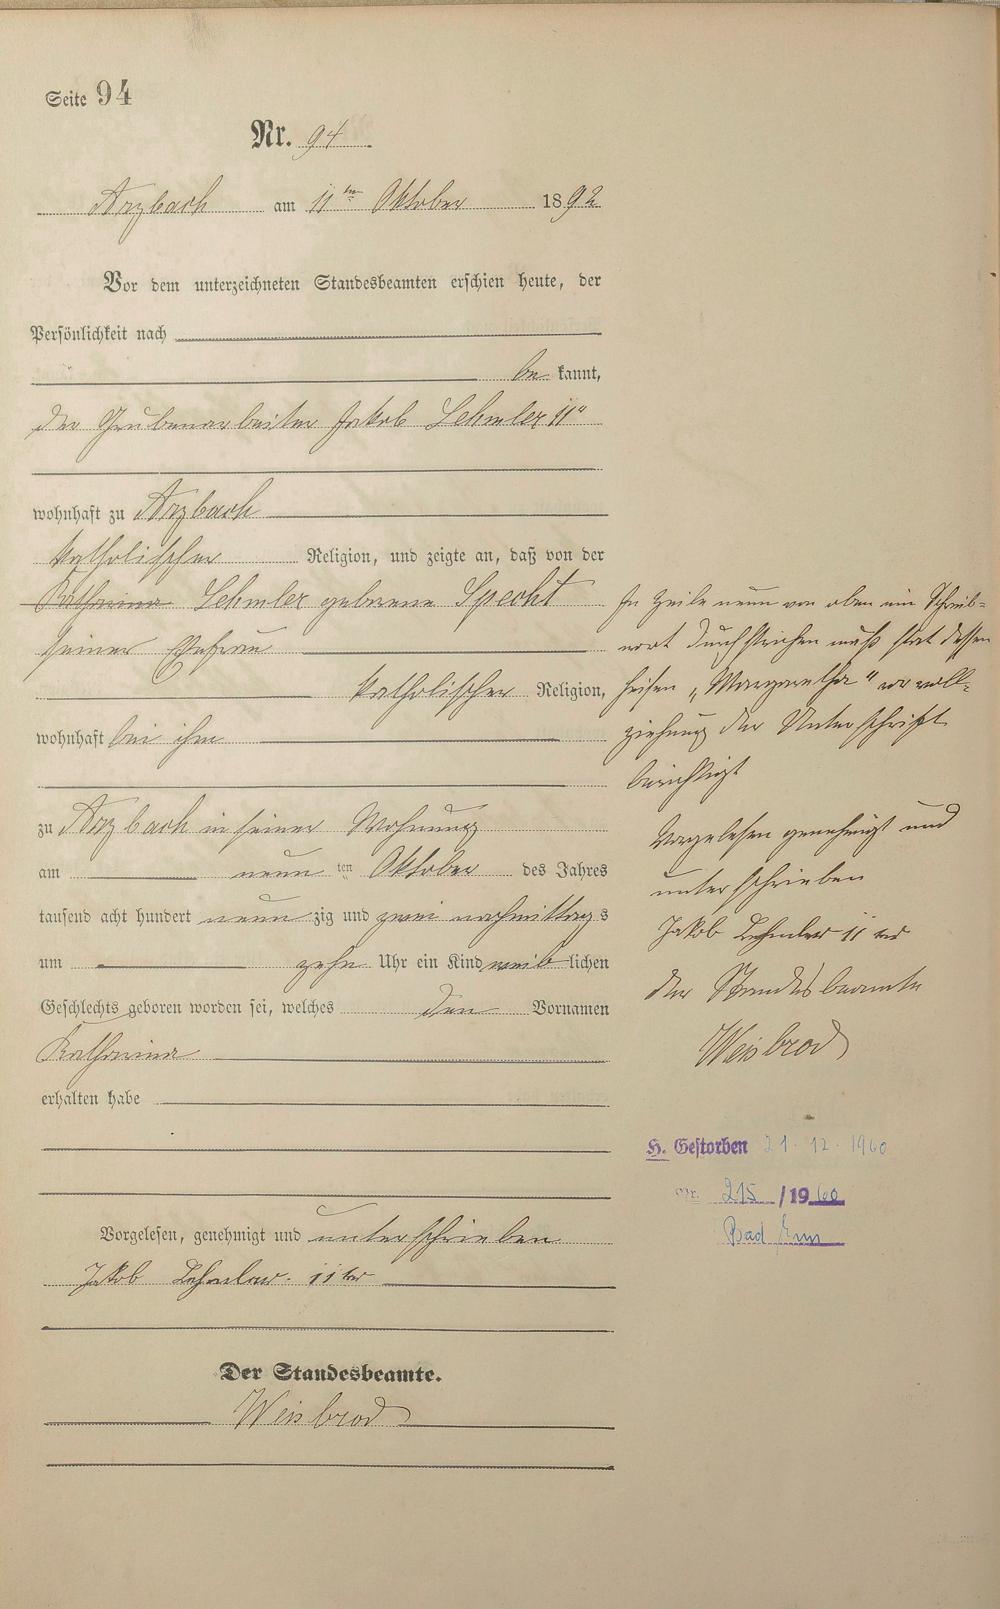 Seite 94
Nr. 94
Arzbach am 11ten Oktober 1892
Vor dem unterzeichneten Standesbeamten erschien heute, der
Persönlichkeit nach
be kannt,
der Grubenarbeiter Jakob Lehmler 11r
wohnhaft zu Arzbach
katholischer Religion, und zeigte an, daß von der
Katharina Lehmler geborene Specht
seiner Ehefrau
katholischer Religion,
wohnhaft bei ihm
zu Arzbach in seiner Wohnung
am neun ten Oktober des Jahres
tausend acht hundert neun zig und zwei nachmittag s
um zehn Uhr ein Kind weib lichen
Geschlechts geboren worden sei, welches den Vornamen
Katharina
erhalten habe
Vorgelesen, genehmigt und unterschrieben
Jakob Lehmler 11ter
Der Standesbeamte.
Weisbrod
In Zeile neun von oben ein Schreib-
wort durchstrichen muß statt dessen
heißen „Margaretha" vor voll-
ziehung der Unterschrift
berichtigt
Vorgelesen genehmigt und
unterschrieben
Jakob Lehmler 11ter
der Standesbeamte
Weisbrod
H. Gestorben 21.12.1960
Nr. 215 /1960
Bad Ems